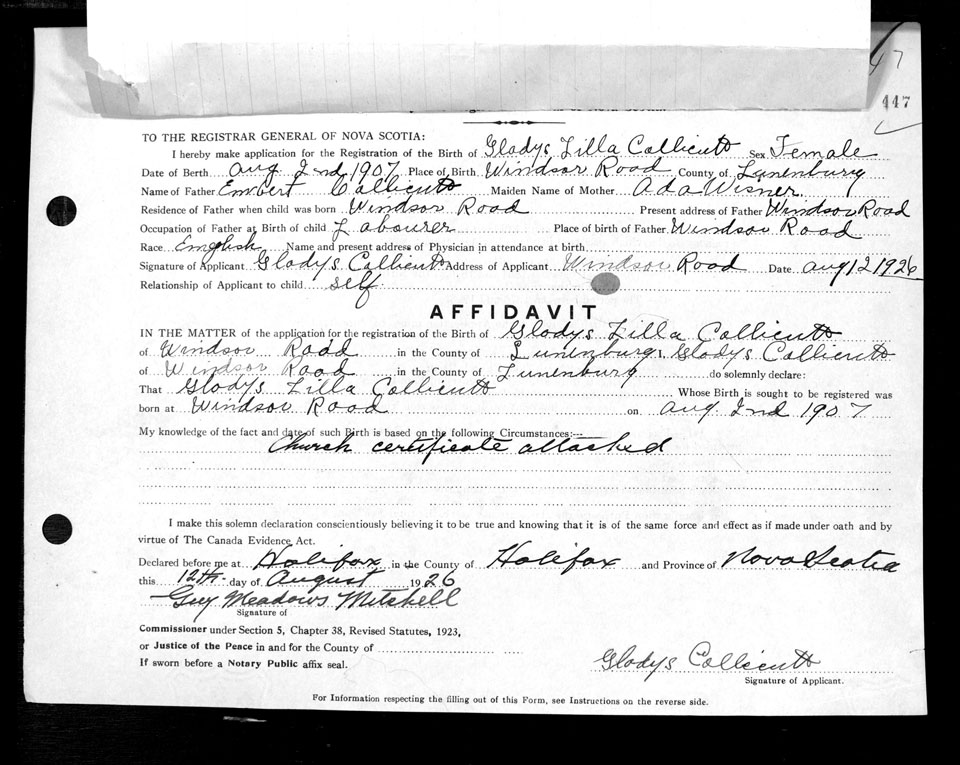 47
447
TO THE REGISTRAR GENERAL OF NOVA SCOTIA:
I hereby make application for the Registration of the Birth of Gladys Lilla Collicutt Sex Female
Date of Berth Aug 2nd 1907 Place of Birth Windsor Road County of Lunenburg
Name of Father Embert Collicutt Maiden Name of Mother Ada Wisner
Residence of Father when child was born Windsor Road Present address of Father Windsor Road
Occupation of Father at Birth of child Labourer Place of birth of Father Windsor Road
Race English Name and present address of Physician in attendance at birth
Signature of Applicant Gladys Collicutt Address of Applicant Windsor Road Date Aug 12 1926
Relationship of Applicant to child self
AFFIDAVIT
IN THE MATTER of the application for the registration of the Birth of Gladys Lilla Collicutt
of Windsor Road in the County of Lunenburg I, Gladys Collicutt
of Windsor Road in the County of Lunenburg do solemnly declare:
That Gladys Lilla Collicutt Whose Birth is sought to be registered was
born at Windsor Road on Aug 2nd 1907
My knowledge of the fact and date of such Birth is based on the following Circumstances:—
Church certificate attached
I make this solemn declaration conscientiously believing it to be true and knowing that it is of the same force and effect as if made under oath and by
virtue of The Canada Evidence Act.
Declared before me at Halifax in the County of Halifax and Province of Nova Scotia
this 12th day of August 1926
Guy Meadows Mitchell
Signature of
Commissioner under Section 5, Chapter 38, Revised Statutes, 1923,
or Justice of the Peace in and for the County of
If sworn before a Notary Public affix seal.
Gladys Collicutt
Signature of Applicant.
For Information respecting the filling out of this Form, see Instructions on the reverse side.